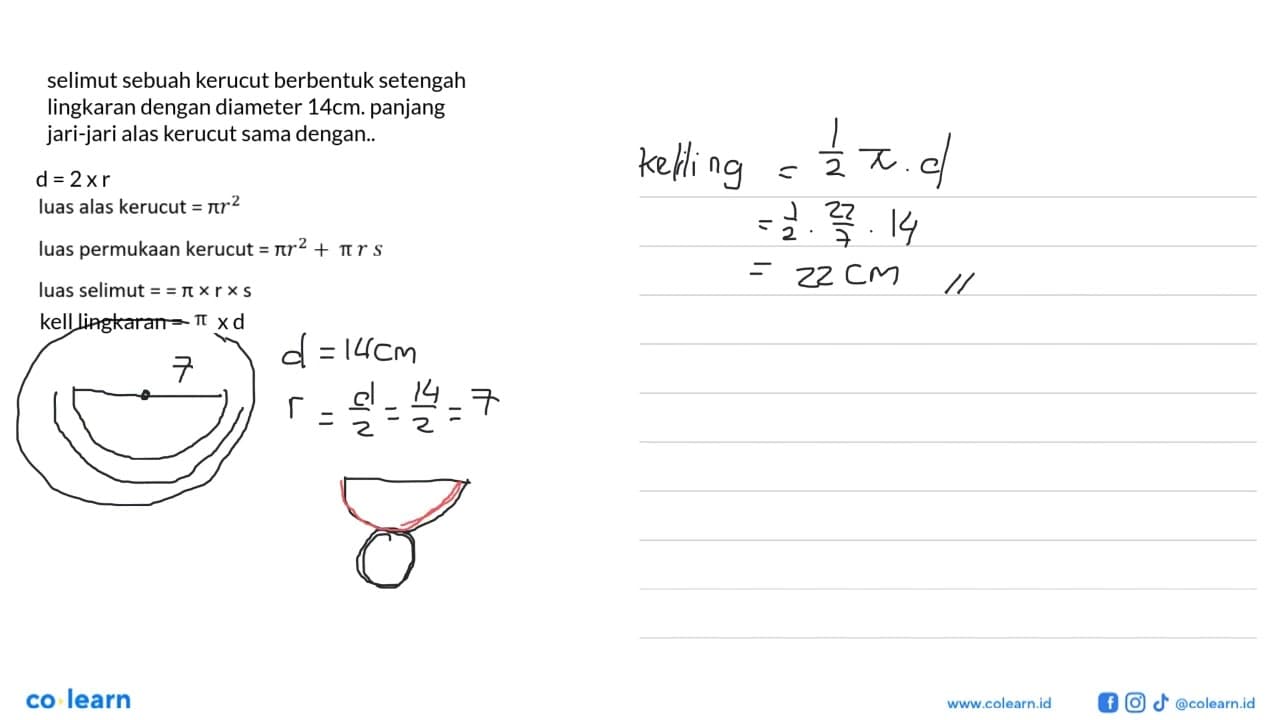 selimut sebuah kerucut berbentuk setengah
lingkaran dengan diameter 14cm. panjang
jari-jari alas kerucut sama dengan..
d = 2 x r
luas alas kerucut = πr²
luas permukaan kerucut = πr² + π r s
luas selimut = = π × r × s
kell lingkaran = π x d
7
d = 14cm
r = d/2 = 14/2 = 7
keliling = 1/2 π . d
= 1/2 . 22/7 . 14
= 22 cm //
co learn
www.colearn.id
@colearn.id